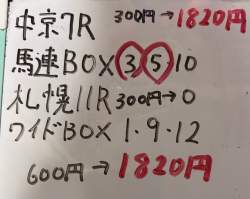 中京7R 300円→1820円
馬連BOX 3,5,10
札幌11R 300円→0
ワイドBOX 1・9・12
600円→1820円